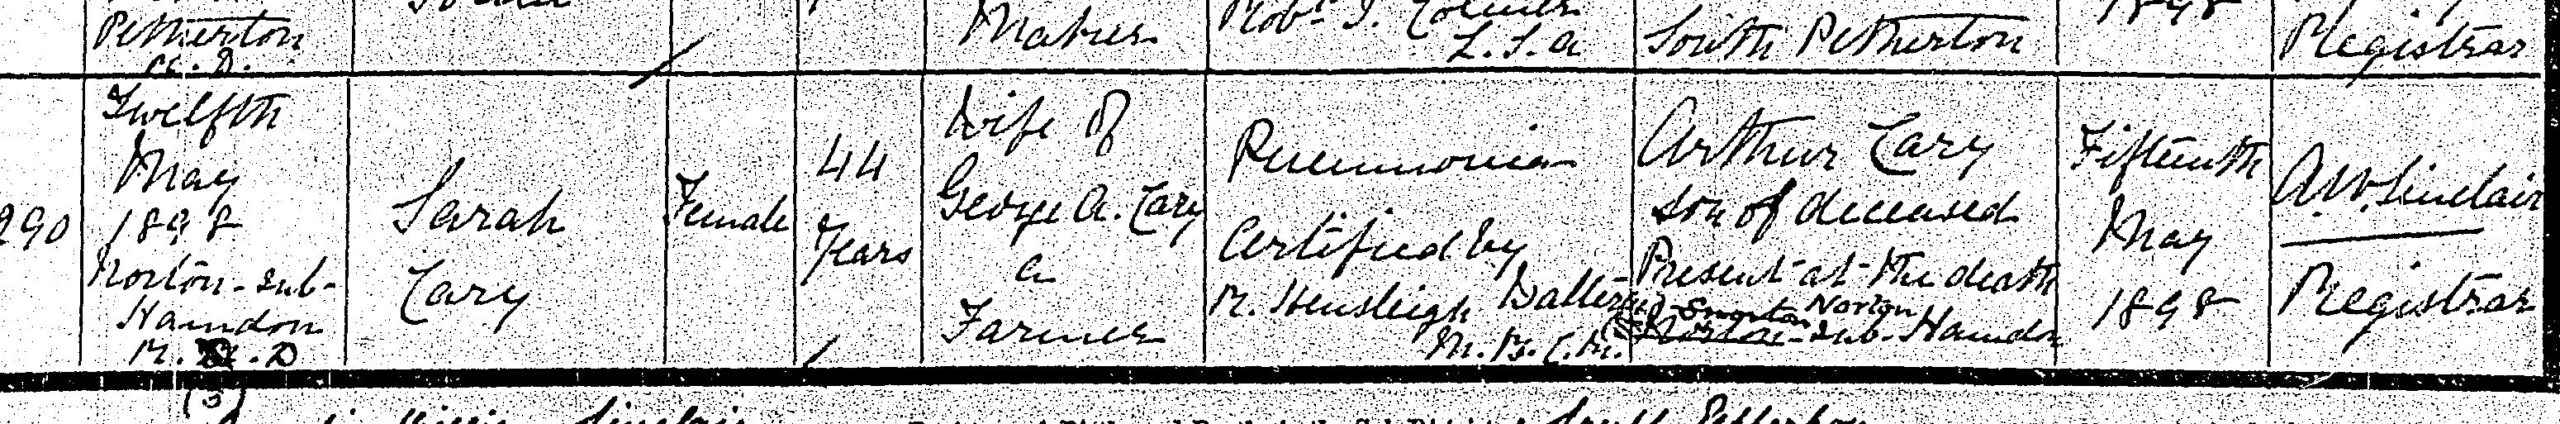 Petherton
R. D.
Maker
L. S. A
South Petherton
1898
Registrar
290
Twelfth
May
1898
Norton-sub-
Hamdon
R. D
Sarah
Cary
Female
44
Years
Wife of
George A. Cary
a
Farmer
Pneumonia
Certified by
R. Hensleigh Walter
M. B. C. M.
Arthur Cary
Son of deceased
Present at the death
Norton
Norton-sub-Hamdon
Fifteenth
May
1898
A. W. Sinclair
Registrar
(5)
Sinclair
South Petherton